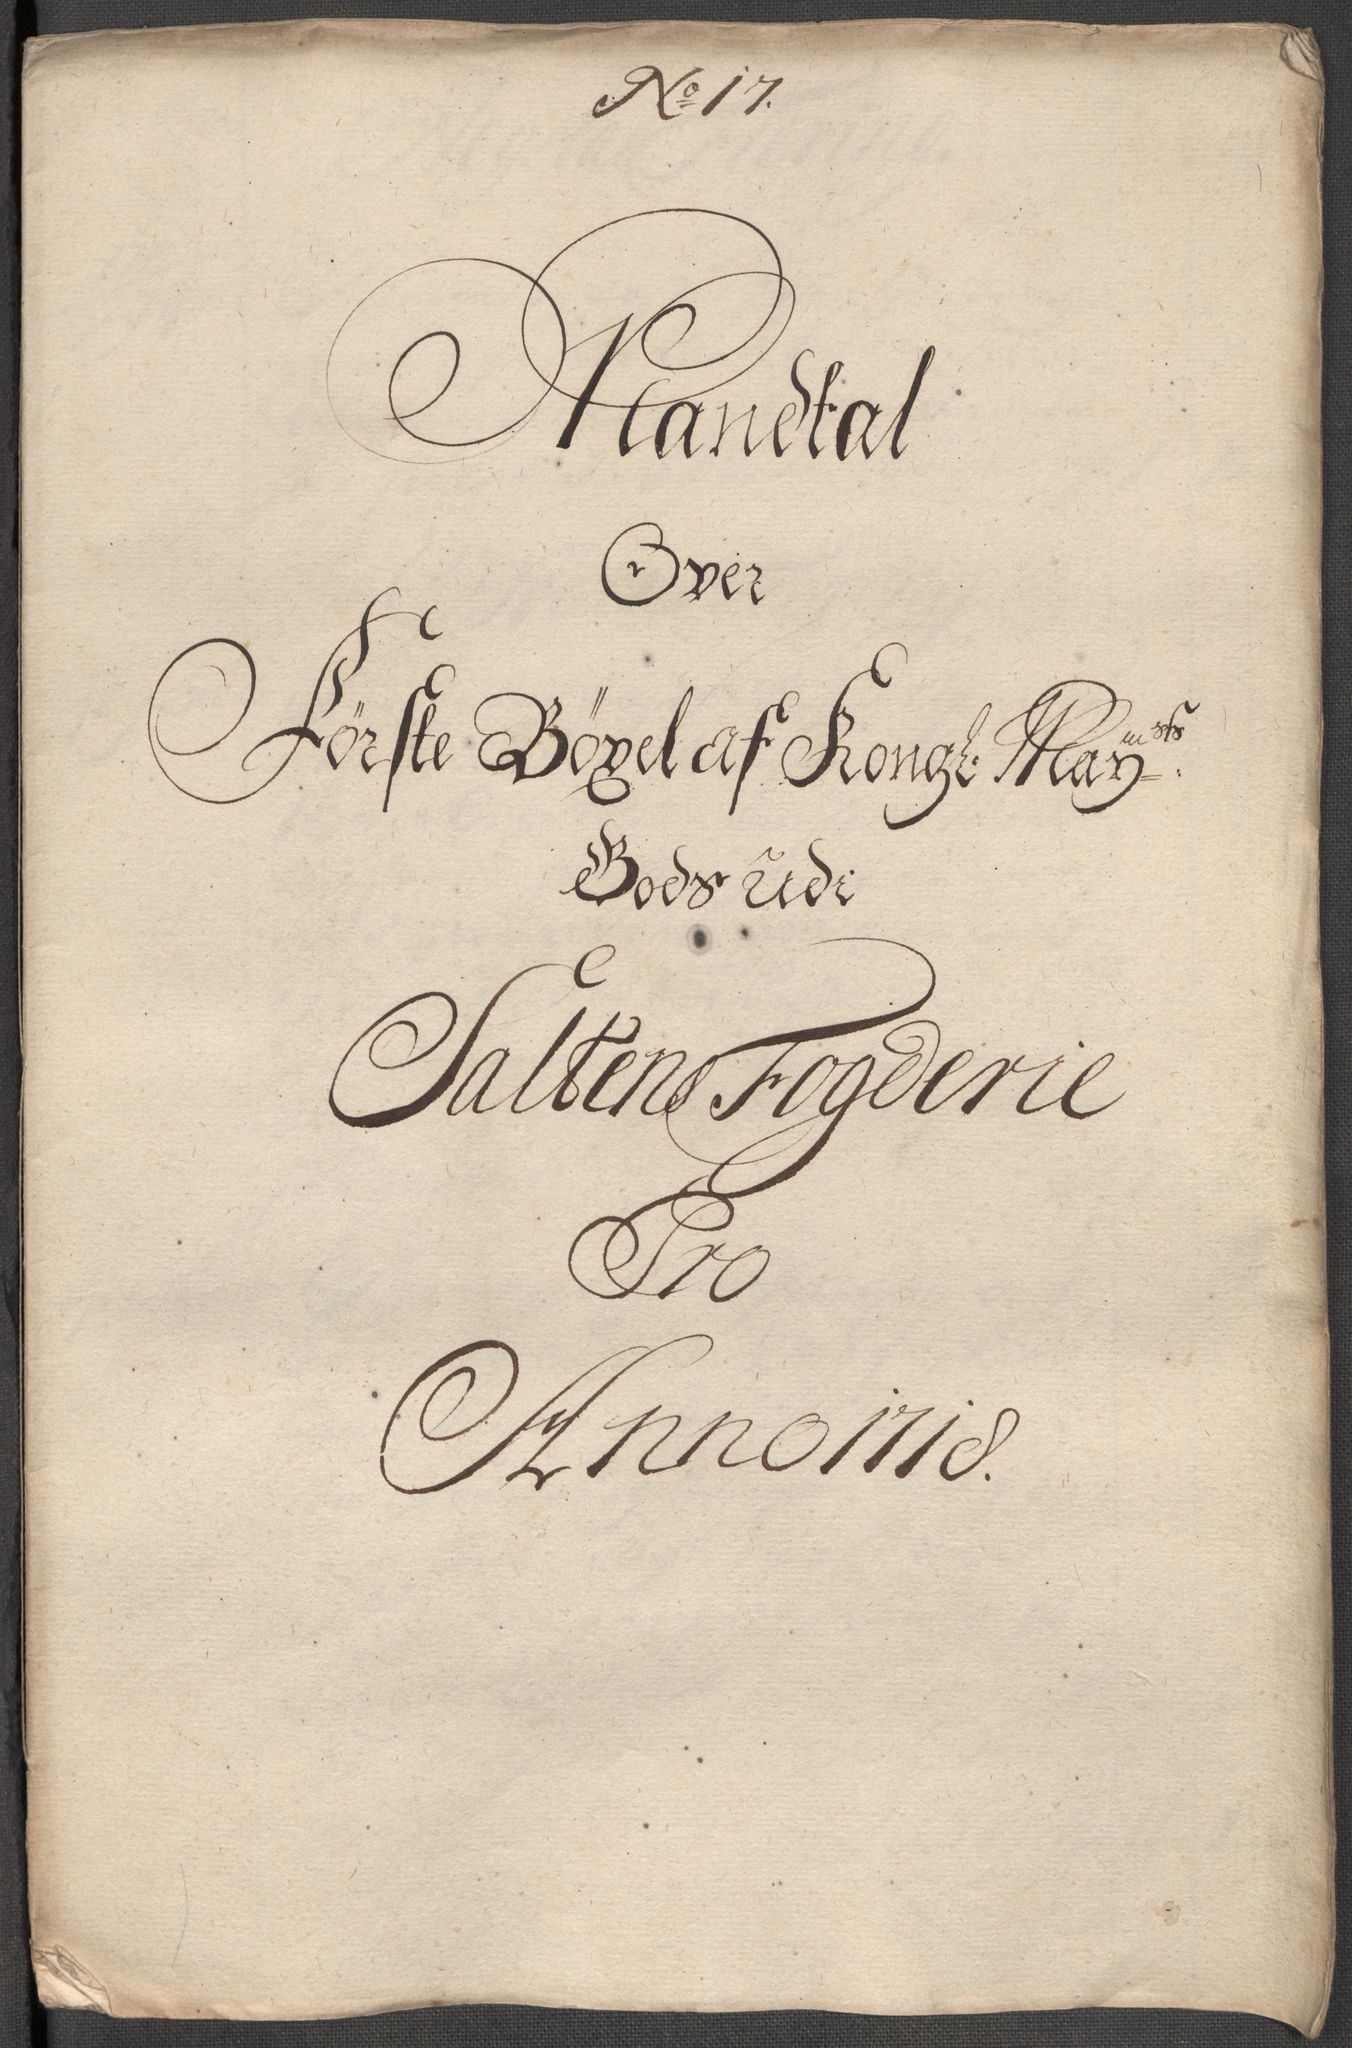 No 17.
Mandtal
Over
Første Böxel af Kongl: Maÿsts.
Gods Udi
Saltens Fogderie
Pro
Anno 1718.